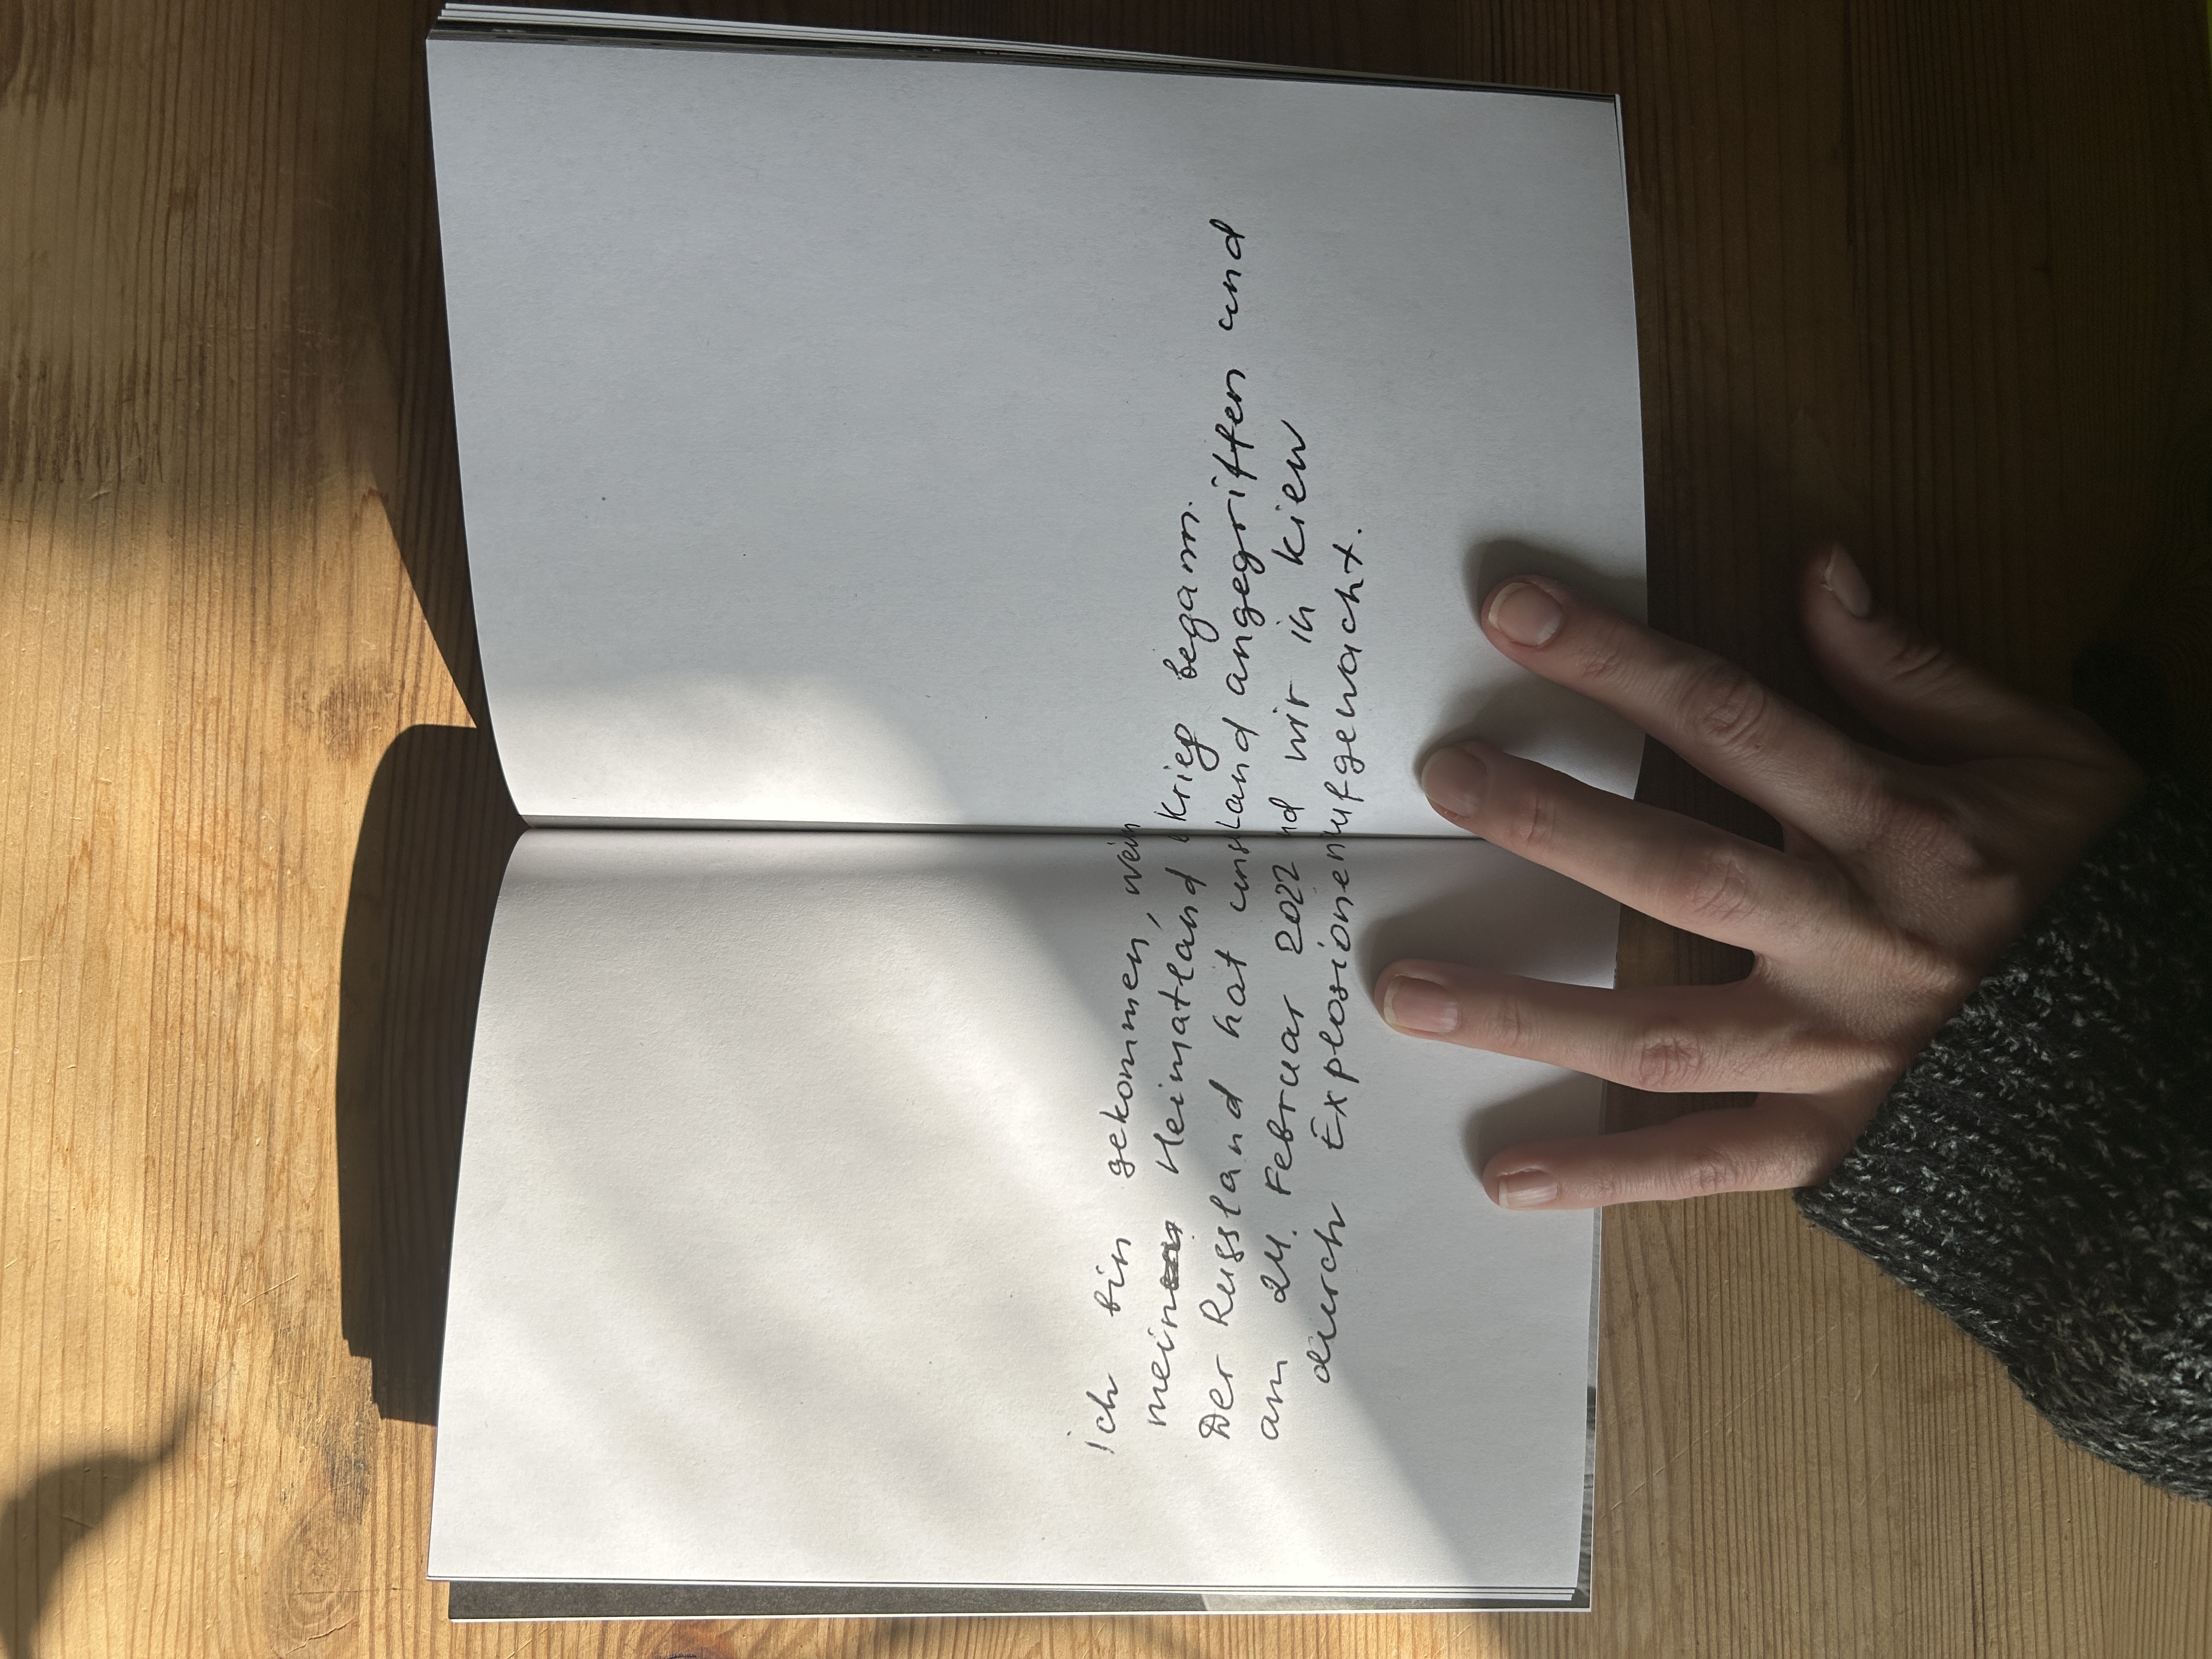 Ich bin gekommen,
mein Heimatland Krieg begann.
Der Russland hat uns Land angegriffen und
am 24. Februar 2022 nd wir in Kiew
durch Explosionen ufgewacht.